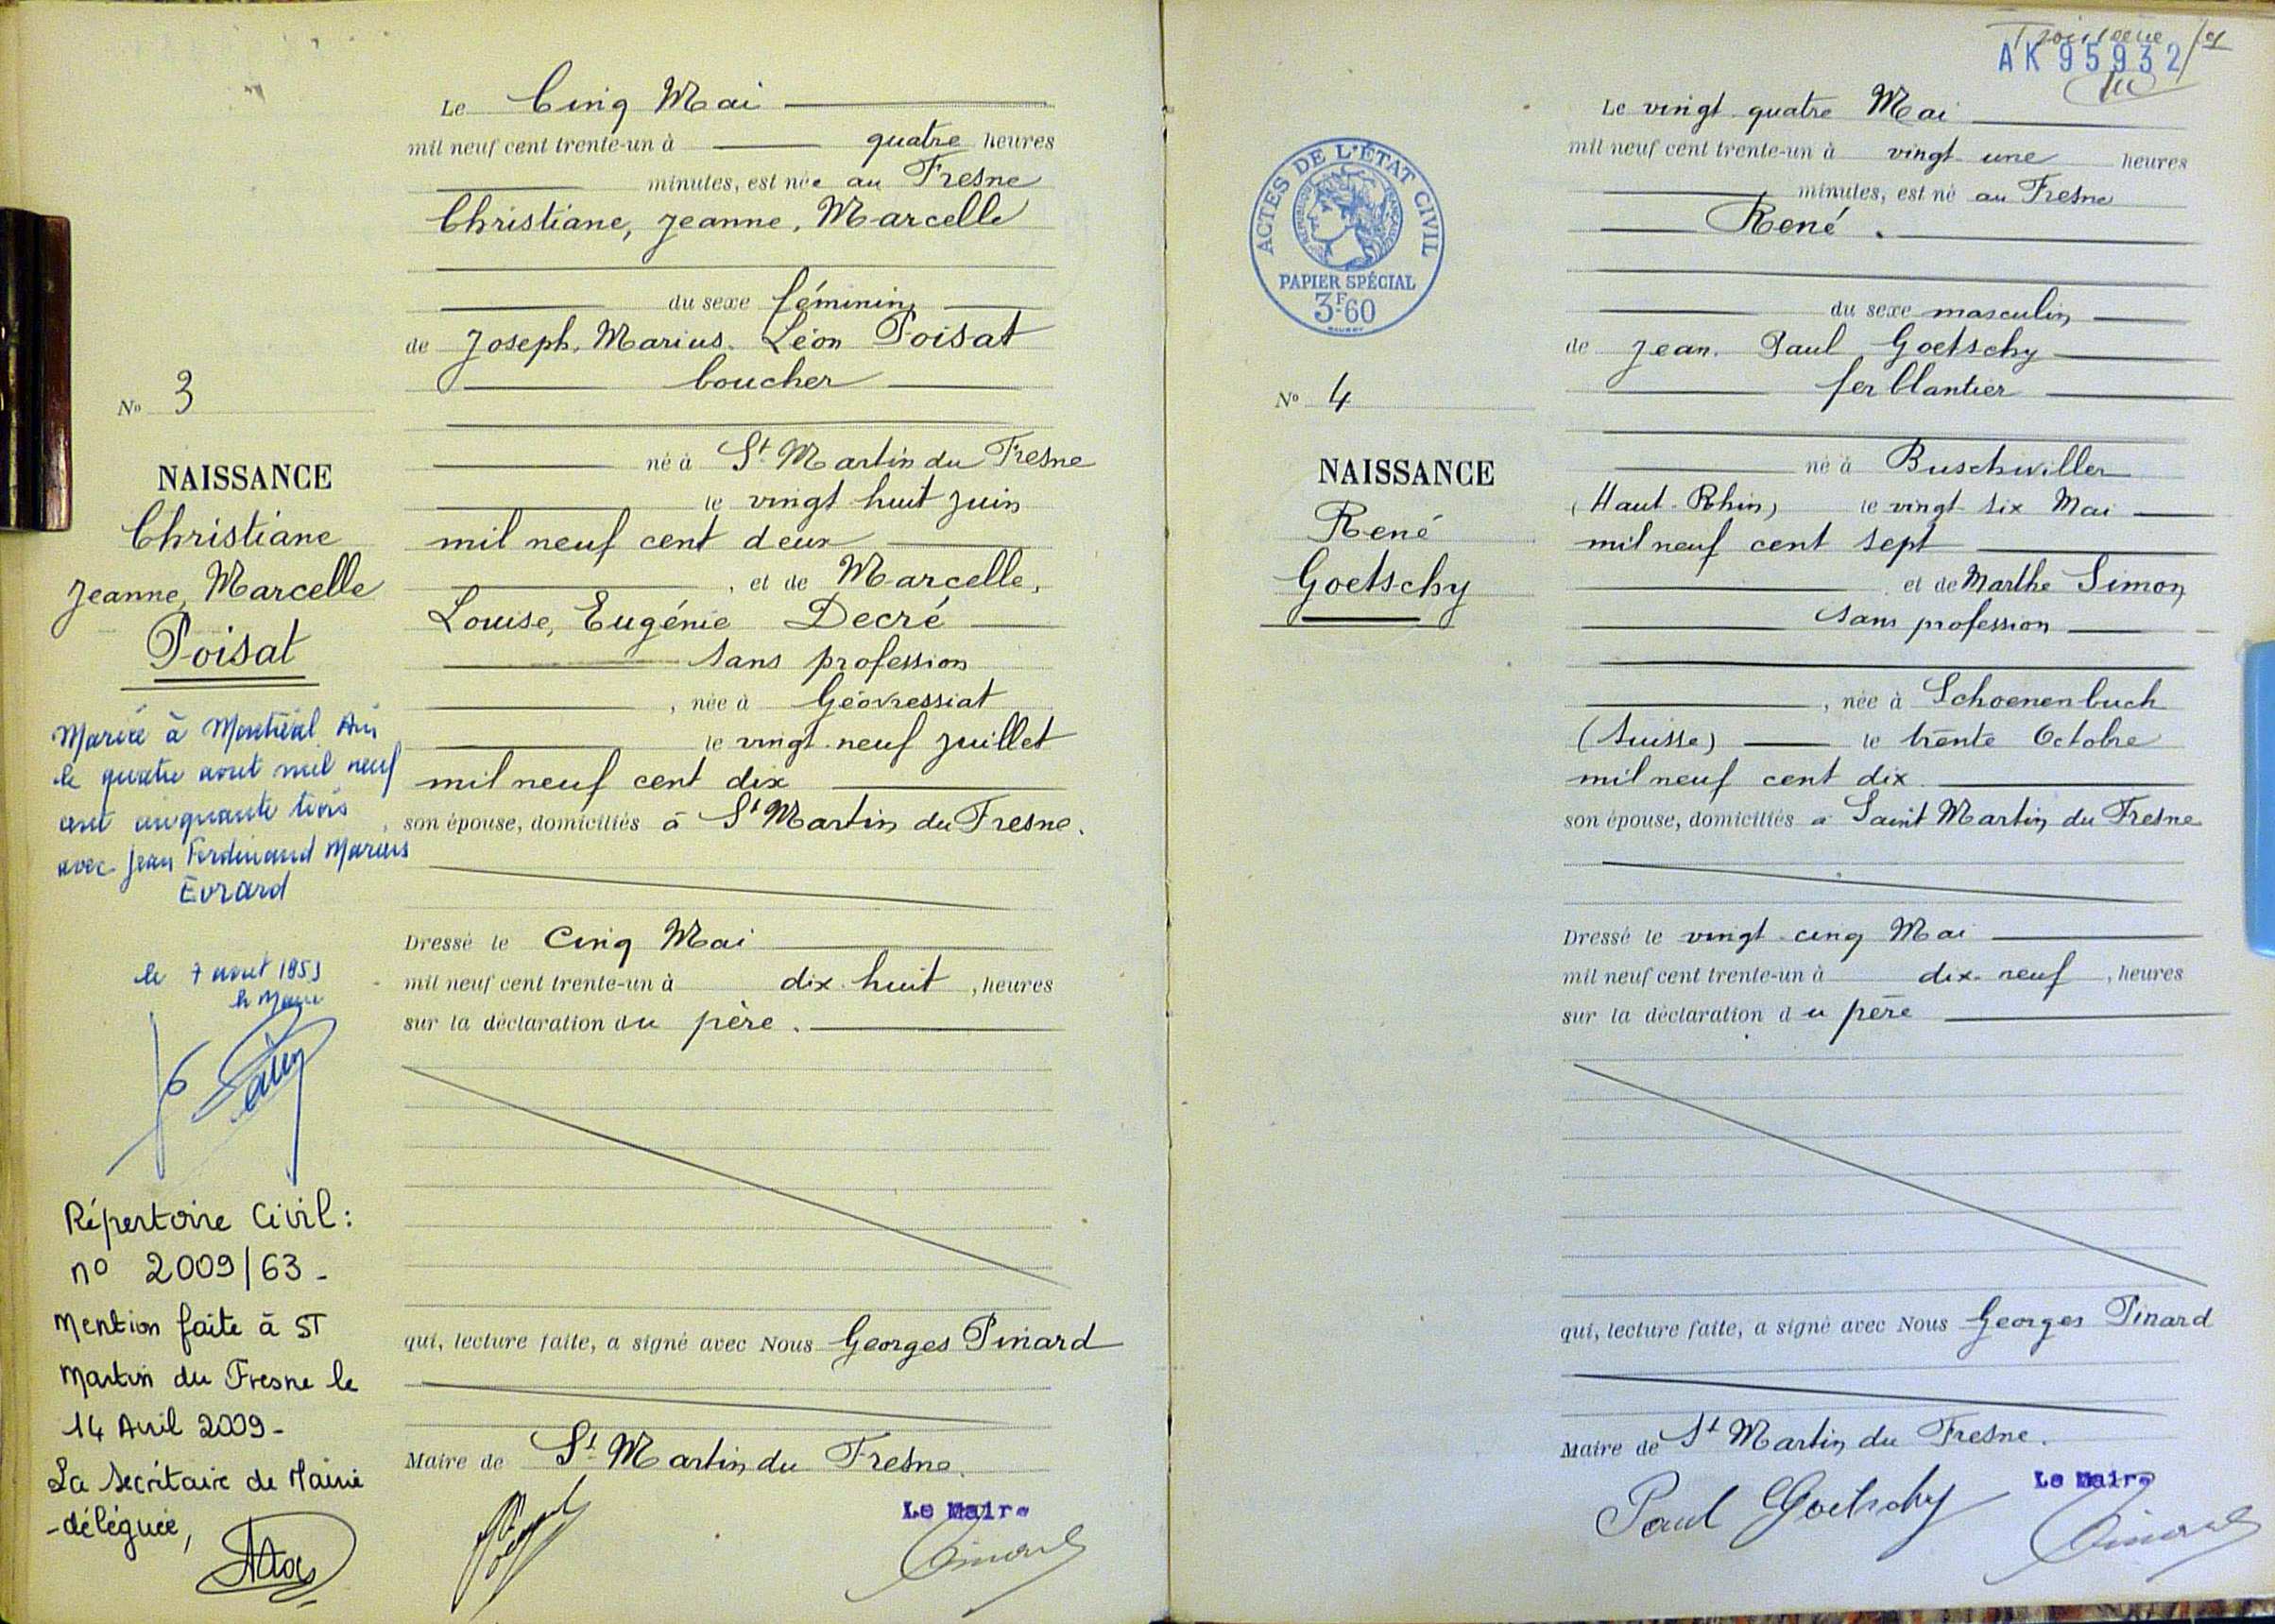 Le Cinq Mai
mil neuf cent trente-un à quatre heures
minutes, est née au Fresne
Christiane, Jeanne, Marcelle
du sexe féminin
de Joseph, Marius, Léon Poisat
boucher
né à St Martin du Fresne
le vingt huit juin
mil neuf cent deux
, et de Marcelle,
Louise, Eugénie Decré
sans profession
, née à Géovressiat
le vingt neuf juillet
mil neuf cent dix
son épouse, domiciliés à St Martin du Fresne.
Dressé le Cinq Mai
mil neuf cent trente-un à dix huit, heures
sur la déclaration du père.
qui, lecture faite, a signé avec Nous Georges Pinard
Maire de St Martin du Fresne.
Le Maire
No 3
NAISSANCE
Christiane
Jeanne, Marcelle
Poisat
Mariée à Montréal Ain
le quatre aout mil neuf
cent cinquante trois
avec Jean Ferdinand Marius
Evrard
le 7 aout 1953
le Maire
Répertoire Civil:
no 2009/63-
Mention faite à ST
Martin du Fresne le
14 Avril 2009-
La Secrétaire de Mairie
-déléguée,
Troisième
AK 95932
Le vingt quatre Mai
mil neuf cent trente-un à vingt une heures
minutes, est né au Fresne
René.
du sexe masculin
de Jean. Paul Goetschy
ferblantier
né à Buschwiller
(Haut-Rhin) le vingt six Mai
mil neuf cent sept
et de Marthe Simon
sans profession
, née à Schoenenbuch
(Suisse) le trente Octobre
mil neuf cent dix
son épouse, domiciliés à Saint Martin du Fresne
Dressé le vingt-cinq Mai
mil neuf cent trente-un à dix-neuf, heures
sur la déclaration du père
qui, lecture faite, a signé avec Nous Georges Pinard
Maire de St Martin du Fresne.
Le Maire
Paul Goetschy
ACTES DE L'ÉTAT CIVIL
RÉPUBLIQUE FRANÇAISE
PAPIER SPÉCIAL
3F60
No 4
NAISSANCE
René
Goetschy